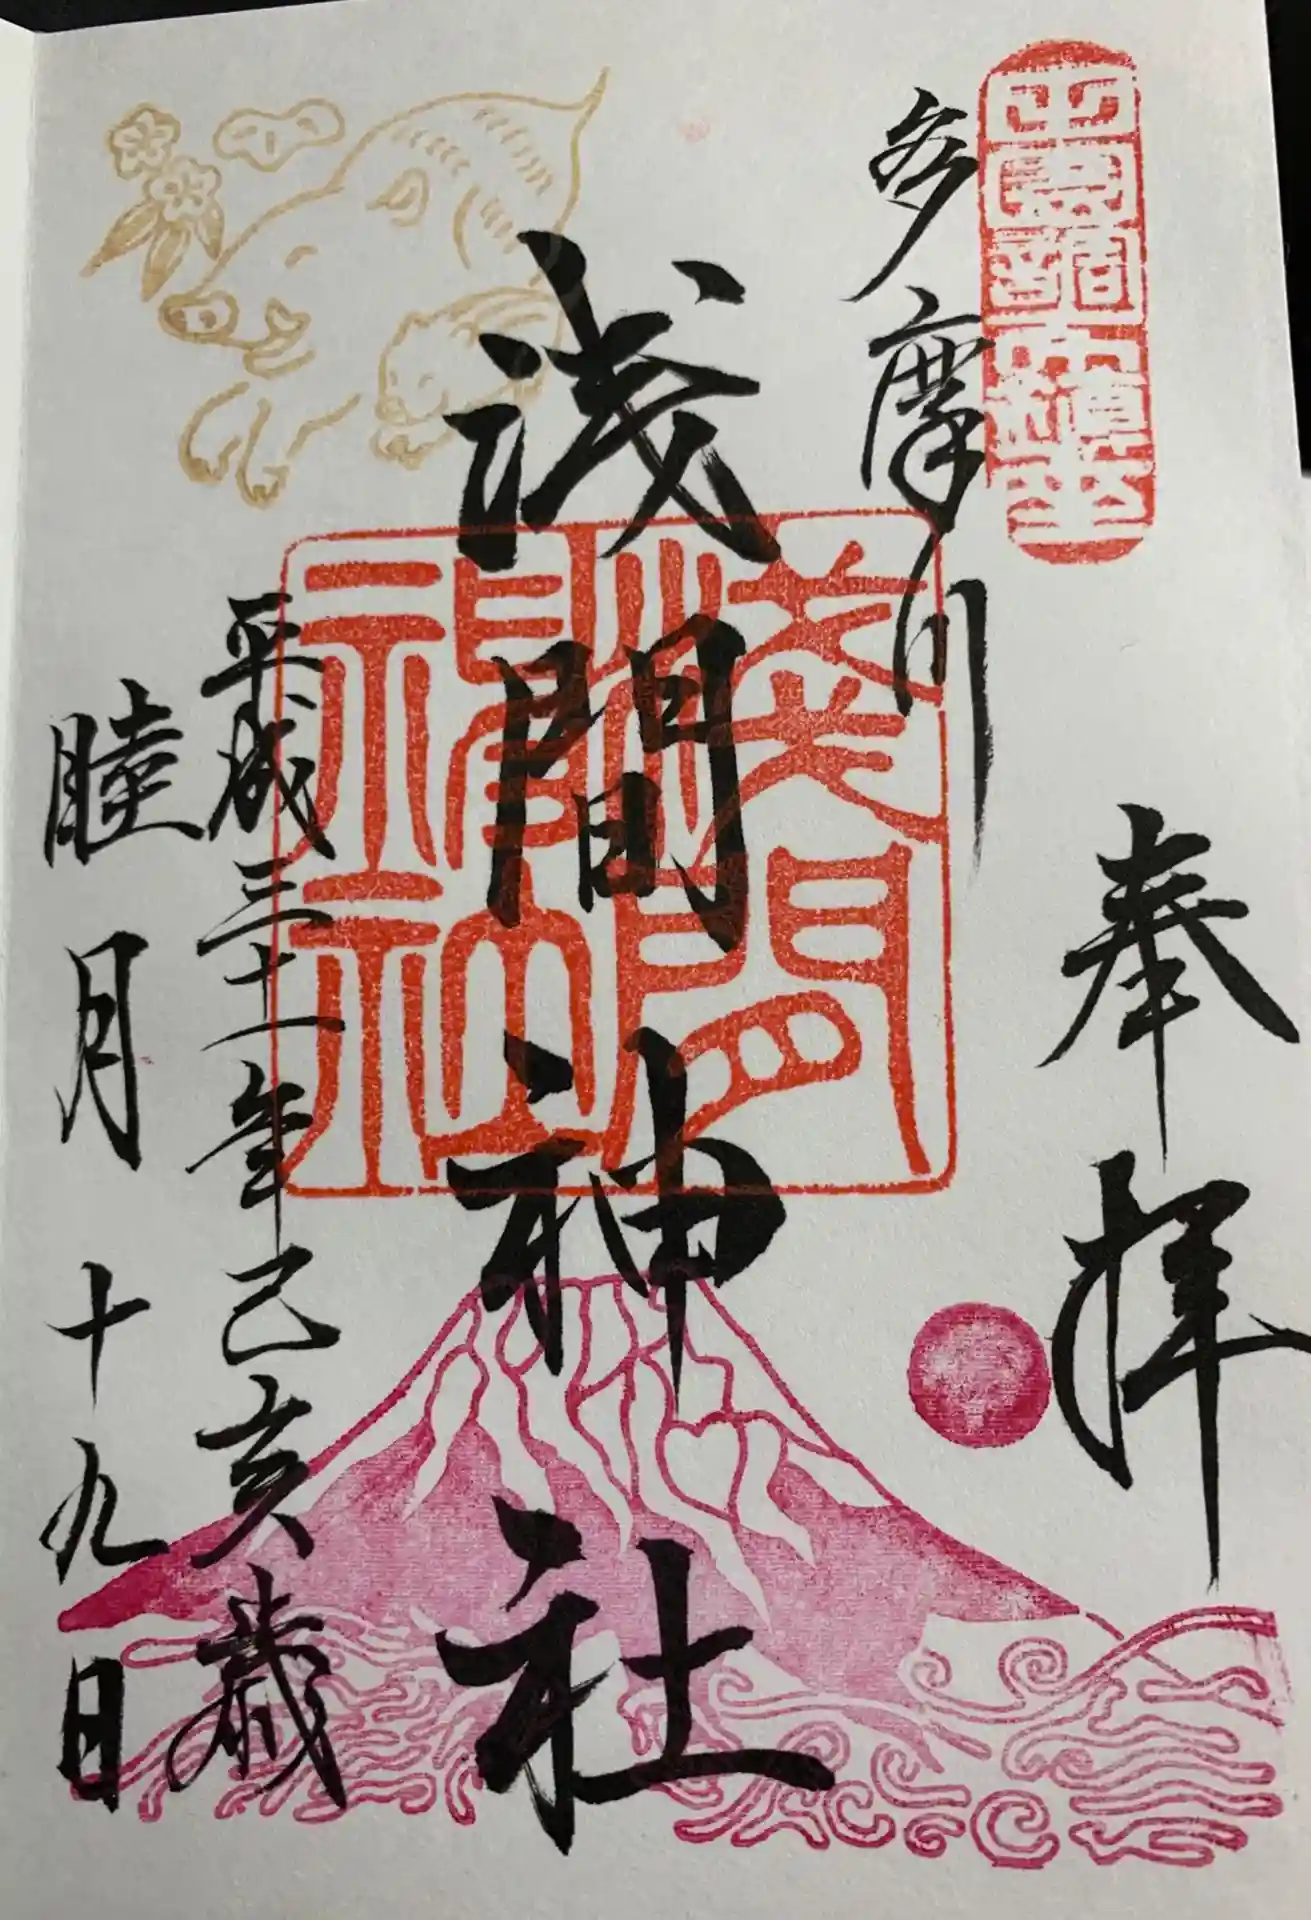 奉拝
多摩川
浅間神社
淺間神社
平成三十一年己亥歳
睦月十九日